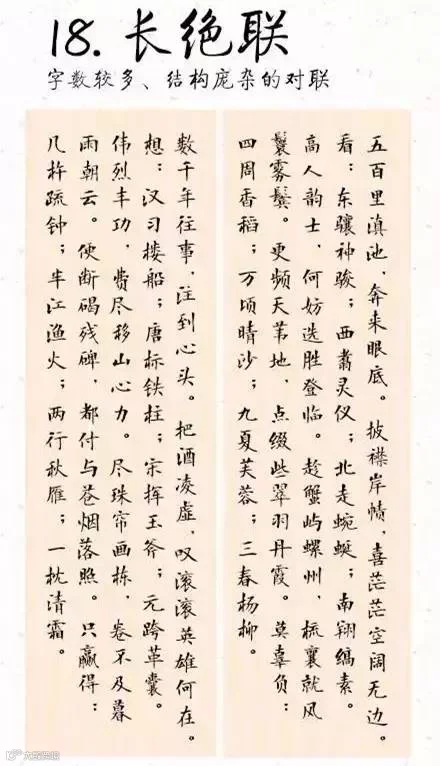 18. 长绝联
字数较多、结构庞杂的对联
五百里滇池，奔来眼底。披襟岸帻，喜茫茫空阔无边。
看：东骧神骏；西翥灵仪；北走蜿蜒；南翔缟素。
高人韵士，何妨选胜登临。趁蟹屿螺州，梳襄就风
鬟雾鬓。更频天苇地，点缀些翠羽丹霞。莫辜负：
四周香稻；万顷晴沙；九夏芙蓉；三春杨柳。
数千年往事，注到心头。把酒凌虚，叹滚滚英雄何在。
想：汉习楼船；唐标铁柱；宋挥玉斧；元跨革囊。
伟烈丰功，费尽移山心力。尽珠帘画栋，卷不及暮
雨朝云。便断碣残碑，都付与苍烟落照。只赢得：
几杵疏钟；半江渔火；两行秋雁；一枕清霜。